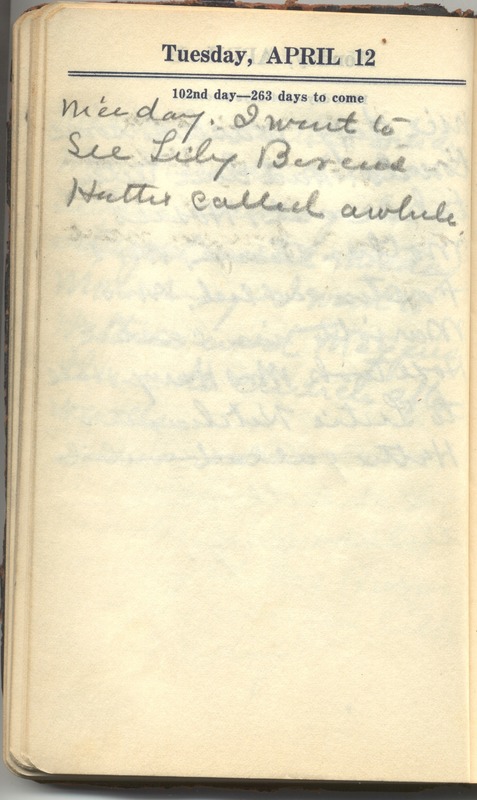 Tuesday, APRIL 12
102nd day—263 days to come
Nice day. I went to
See Lily
Hattie called awhile